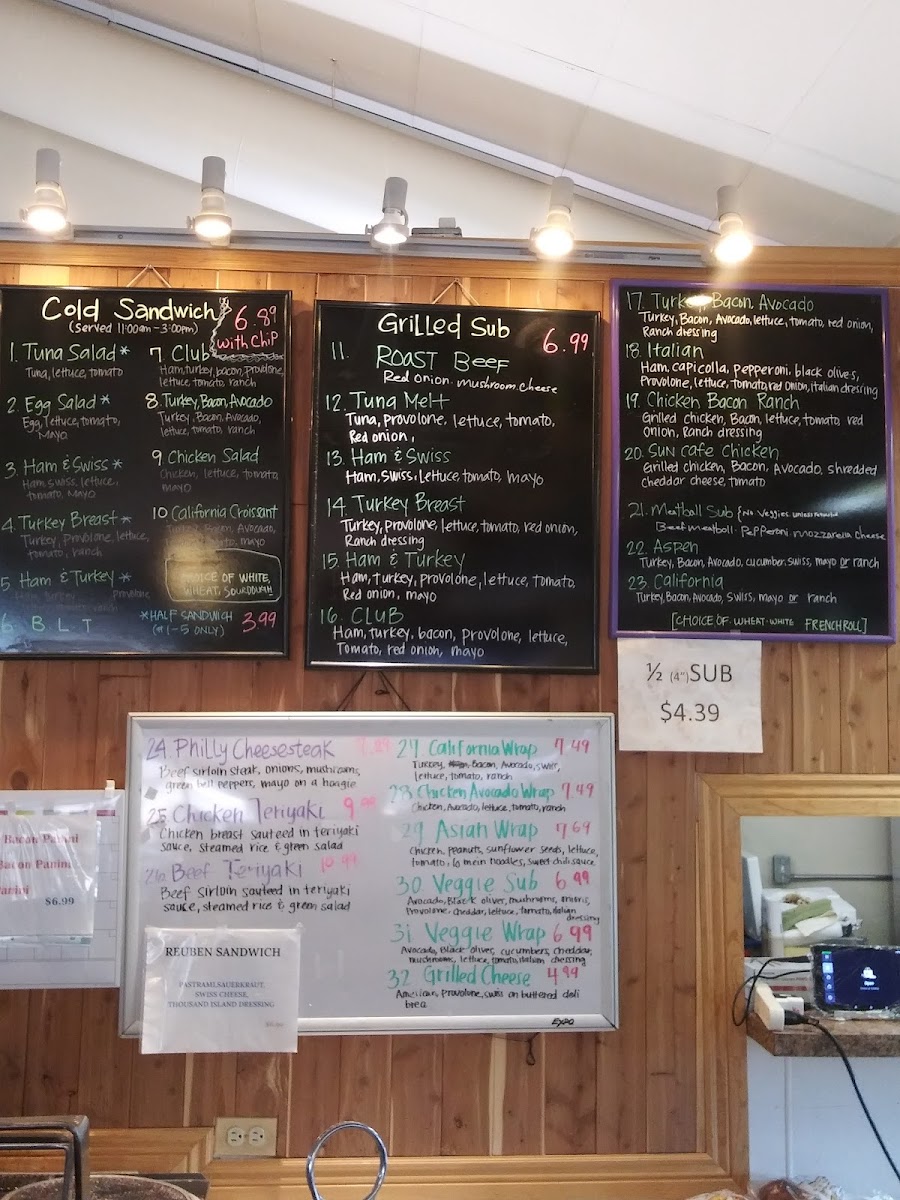 Cold Sandwich
(served 11:00am-3:00pm)
6.89
with Chip
1. Tuna Salad*
Tuna, lettuce, tomato
2. Egg Salad*
Egg, lettuce, tomato,
Mayo
3 Ham & Swiss*
Ham, Swiss, lettuce,
tomato, Mayo
4 Turkey Breast*
Turkey, Provolone, lettuce,
tomato, ranch
5 Ham & Turkey*
6. BLT
7 Club
Ham, turkey, bacon, provolone,
lettuce, tomato, ranch
8. Turkey, Bacon, Avocado
Turkey, Bacon, Avocado,
lettuce, tomato, ranch
9 Chicken Salad
Chicken, lettuce, tomato,
mayo
10 California Croissant
Turkey, Bacon, Avocado,
tomato, mayo
CHOICE OF WHITE,
WHEAT, SOURDOUGH
*HALF SANDWICH
(#1-5 ONLY)
3.99
Grilled Sub
6.99
11. ROAST BEEF
Red onion. mushroom. cheese
12. Tuna Melt
Tuna, provolone, lettuce, tomato,
Red onion,
13. Ham & Swiss
Ham, Swiss, Lettuce, tomato, mayo
14. Turkey Breast
Turkey, provolone, lettuce, tomato, red onion,
Ranch dressing
15. Ham & Turkey
Ham, turkey, provolone, lettuce, tomato,
Red onion, mayo
16. CLUB
Ham, turkey, bacon, provolone, lettuce,
Tomato, red onion, mayo
17. Turkey, Bacon, Avocado
Turkey, Bacon, Avocado, lettuce, tomato, red onion,
Ranch dressing
18. Italian
Ham, capicolla, pepperoni, black olives,
Provolone, lettuce, tomato, red onion, italian dressing
19. Chicken Bacon Ranch
Grilled chicken, Bacon, lettuce, tomato, red
onion, Ranch dressing
20. Sun Cafe Chicken
Grilled chicken, Bacon, Avocado, shredded
cheddar cheese, tomato
21. Meatball Sub (No veggies unless
Beef meatball. Pepperoni mozzarella cheese
22. Aspen
Turkey, Bacon, Avocado, cucumber, swiss, mayo or ranch
23. California
Turkey, Bacon, Avocado, swiss, mayo or ranch
[CHOICE OF. WHEAT. WHITE FRENCH ROLL]
½ (4")SUB
$4.39
24. Philly Cheesesteak
Beef sirloin steak, onions, mushrooms,
green bell peppers, mayo on a hoagie
25. Chicken Teriyaki 9.99
Chicken breast sauteed in teriyaki
sauce, steamed rice & green salad
26. Beef Teriyaki 10.99
Beef sirloin sauteed in teriyaki
sauce, steamed rice & green salad
27. California Wrap 7.49
Turkey, Bacon, Avocado, swiss,
lettuce, tomato, ranch
28. Chicken Avocado Wrap 7.49
Chicken, Avocado, lettuce, tomato, ranch
29. Asian Wrap 7.69
Chicken, peanuts, sunflower seeds, lettuce,
tomato, lo mein noodles, sweet chili sauce
30. Veggie Sub 6.99
Avocado, Black olives, mushrooms, onions,
Provolone, cheddar, lettuce, tomato, italian
dressing
31. Veggie Wrap 6.99
Avocado, Black olives, cucumbers, cheddar,
mushrooms, lettuce, tomato, italian dressing
32. Grilled Cheese 4.99
American, provolone, swiss on buttered deli
brea
EXPO
REUBEN SANDWICH
PASTRAMI,SAUERKRAUT,
SWISS CHEESE,
THOUSAND ISLAND DRESSING
Bacon Panini
Bacon Panini
Panini
$6.99